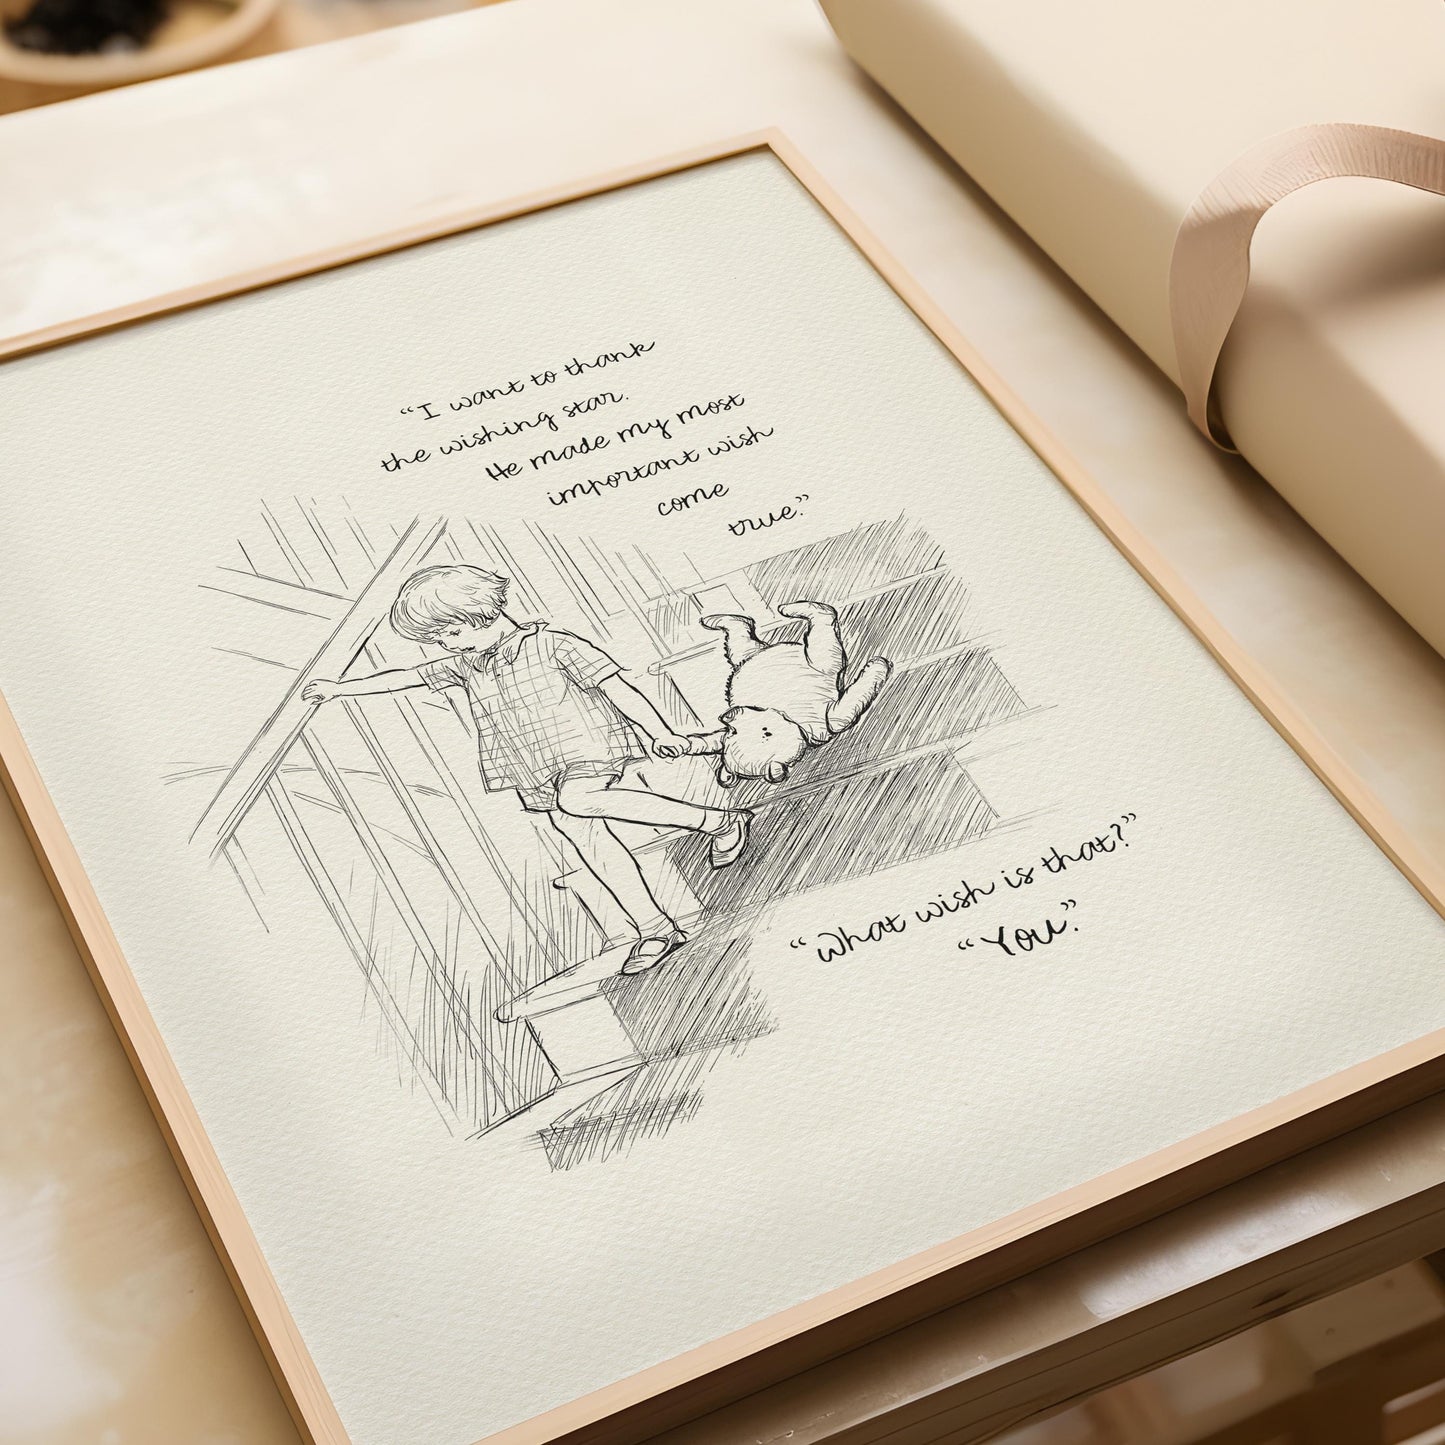 “I want to thank
the wishing star.
He made my most
important wish
come
true.”
“What wish is that?”
“You.”